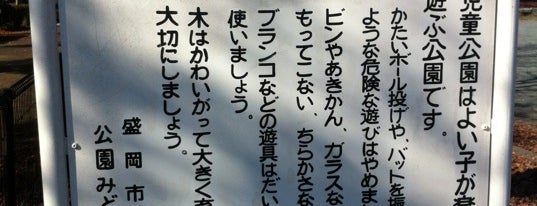 児童公園はよい子が
遊ぶ公園です。
かたいボール投げや、バットを振
ような危険な遊びはやめま
ビンやあきかん、ガラスな
もってこない、ちらかさな
ブランコなどの遊具はだい
使いましょう。
木はかわいがって大きく育
大切にしましょう。
盛岡市
公園みど